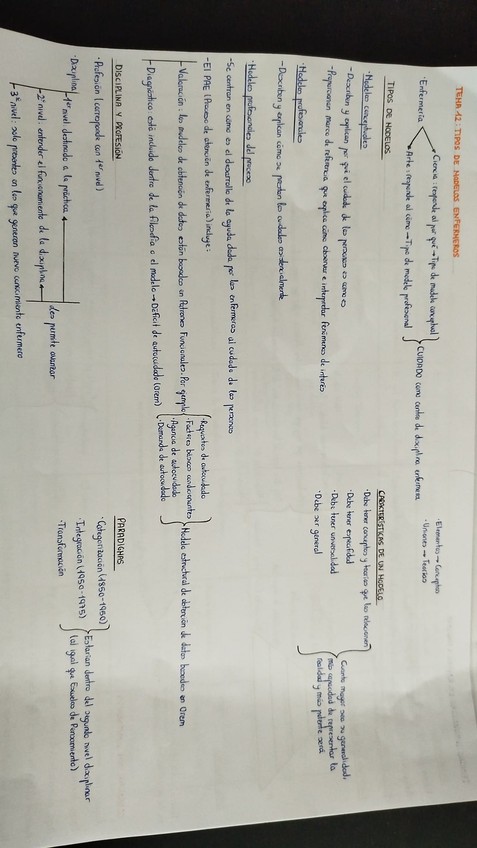 TEMA 12: TIPOS DE MODELOS ENFERMEROS
·Enfermería
Ciencia: responde al por qué → Tipo de modelo conceptual
Arte: responde al cómo → Tipo de modelo profesional
CUIDADO como centro de disciplina enfermera
·Elementos → Conceptos
·Uniones → Teorías
TIPOS DE MODELOS
·Modelos conceptuales
-Describen y explican por qué el cuidado de las personas es como es
-Proporcionan marco de referencia que explica cómo observar e interpretar fenómenos de interés
·Modelos profesionales
-Describen y explican cómo se prestan los cuidados asistencialmente
·Modelos profesionales del proceso
-Se centran en cómo es el desarrollo de la ayuda dada por las enfermeras al cuidado de las personas
-El PAE (Proceso de atención de enfermería) incluye:
Valoración: los modelos de obtención de datos están basados en Patrones Funcionales. Por ejemplo
·Requisitos de autocuidado
·Factores básicos condicionantes
·Agencia de autocuidado
·Demanda de autocuidado
Modelo estructural de obtención de datos basados en Orem
Diagnóstico: está incluido dentro de la filosofía o el modelo → Déficit de autocuidado (Orem)
CARACTERÍSTICAS DE UN MODELO
·Debe tener conceptos y teorías que los relacionen
·Debe tener especificidad
·Debe tener universalidad
·Debe ser general
Cuanto mayor sea su generalidad,
más capacidad de representar la
realidad y más potente será
DISCIPLINA Y PROFESIÓN
·Profesión (corresponde con 1er nivel)
·Disciplina
1er nivel: destinado a la práctica
2º nivel: entender el funcionamiento de la disciplina
3er nivel: solo presentes en los que generan nuevo conocimiento enfermero
les permite avanzar
PARADIGMAS
·Categorización (1850-1950)
·Integración (1950-1975)
·Transformación
Estarían dentro del segundo nivel disciplinar
(al igual que Escuelas de Pensamiento)